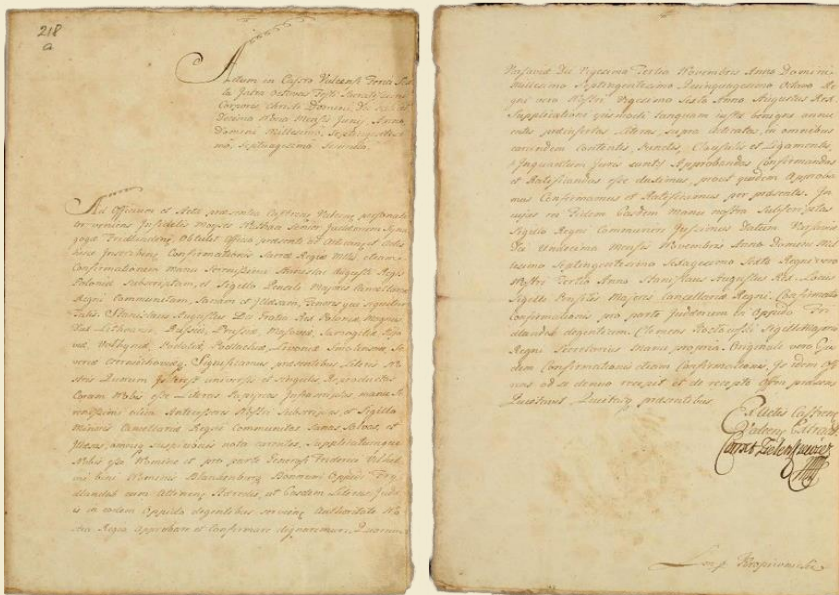 218
a
Actum in Castro Valcensi Feria
la infra Octavas Festi Sacratissimi
Corporis Christi Domini, Die
Decima Nona Mensis Junij, Anno
Domini Millesimo, Septingentesi
mo, Septuagesimo Secundo.
Ad Officium et Acta præsentia Castrens Valcens personali
ter veniens Infidelis Moyses Nathan Senior Judæorum Syna
gogæ Fridlandiens, Obtulit Officio præsenti ad Acticand et Actis
hisce Inscribend Confirmationis Sacræ Regiæ Mttis, etiam
Confirmationem manu Serenissimi Stanislai Augusti Regis
Poloniæ Subscriptam, et Sigillo Pensili Majoris Cancellariæ
Regni Communitam, Sanam et Illæsam, Tenoris qui sequitur
Talis. Stanislaus Augustus Dei Gratia Rex Poloniæ, Magnus
Dux Lithvaniæ, Russiæ, Prussiæ, Masoviæ, Samogitiæ, Kijo
viæ, Volhyniæ, Podoliæ, Podlachiæ, Livoniæ, Smolensciæ, Se
veriæ Czerniechoviæq. Significamus præsentibus Literis No
stris Quorum Interest universis et singulis, Reproductas
Coram Nobis esse Literas Papyreas Infrascriptas manu Se
renissimi olim Antecessoris Nostri Subscriptas et Sigillo
Minoris Cancellariæ Regni Communitas Sanas, Salvas et
Illæsas, omniq suspicionis nota carentes, Supplicatumque
Nobis esse Nomine et pro parte Generosi Friderici
Nominis Blandenburg Bonorum Oppidi Fry
dlandiæ cum Attinenc Hæredis, ut Easdem Literas Judæ
is in eodem Oppido degentibus servienc Authoritate No
stra Regia approbare et Confirmare dignaremur. Quarum
Varsaviæ Die Vigesima Tertia Novembris Anno Domini
Millesimo Septingentesimo Quinquagesimo Octavo Re
gni vero Nostri Vigesimo Sexto Anno. Augustus Rex
Supplicationi quis modi tanquam justæ benigne annu
entes præinsertas Literas, supra Articulas, in omnibus
earundem Contentis, Punctis, Clausulis et Ligamentis,
Inquantum Juris sunt Approbandas Confirmandas
et Ratificandas esse duximus, prout quidem Approba
mus Confirmamus et Ratificamus per præsentes. In
cujus rei Fidem Easdem manu nostra Subscriptas
Sigillo Regni Communiri Jussimus. Datum Varsaviæ
Die Undecima Mensis Novembris Anno Domini Mil
lesimo Septingentesimo Sexagesimo Sexto Regni vero
Nostri Tertio Anno. Stanislaus Augustus Rex. Locus
Sigilli Pensilis Majoris Cancellariæ Regni. Confirmatio
Confirmationis pro parte Judæorum in Oppido Fry
dlandia degentium. Clemens
Regni Secretarius Manu propria. Originale vero Ejus
dem Confirmationis etiam Confirmationis, Is idem Offe
rens ad se denuo recepit et de recepto Offm præsens
Quietavit, Quietatq præsentibus.
Ex Actis Castrens
Valcens Extradit